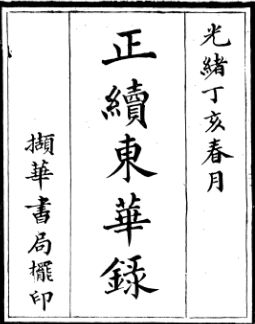 光緒丁亥春月
正續東華録
擷華書局擺印